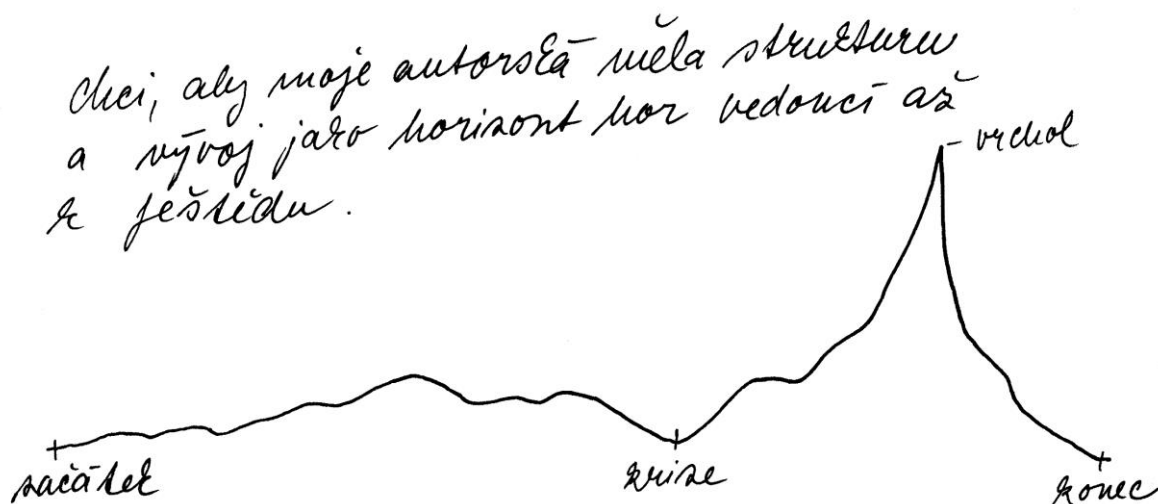 chci, aby moje autorská měla strukturu
a vývoj jako horizont hor vedoucí až
k ještědu.
- vrchol
začátek
krize
konec